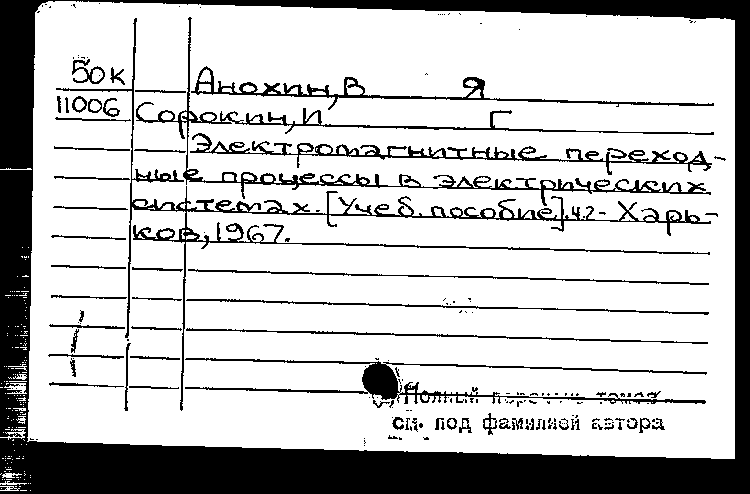 50к Анохин, В Я
11006 Сорокин, И Г
Электромагнитные переход-
ные процессы в электрических
системах. [Учеб. пособие]. ч.2- Харь-
ков, 1967.
Полный перечень томов
см. под фамилией автора